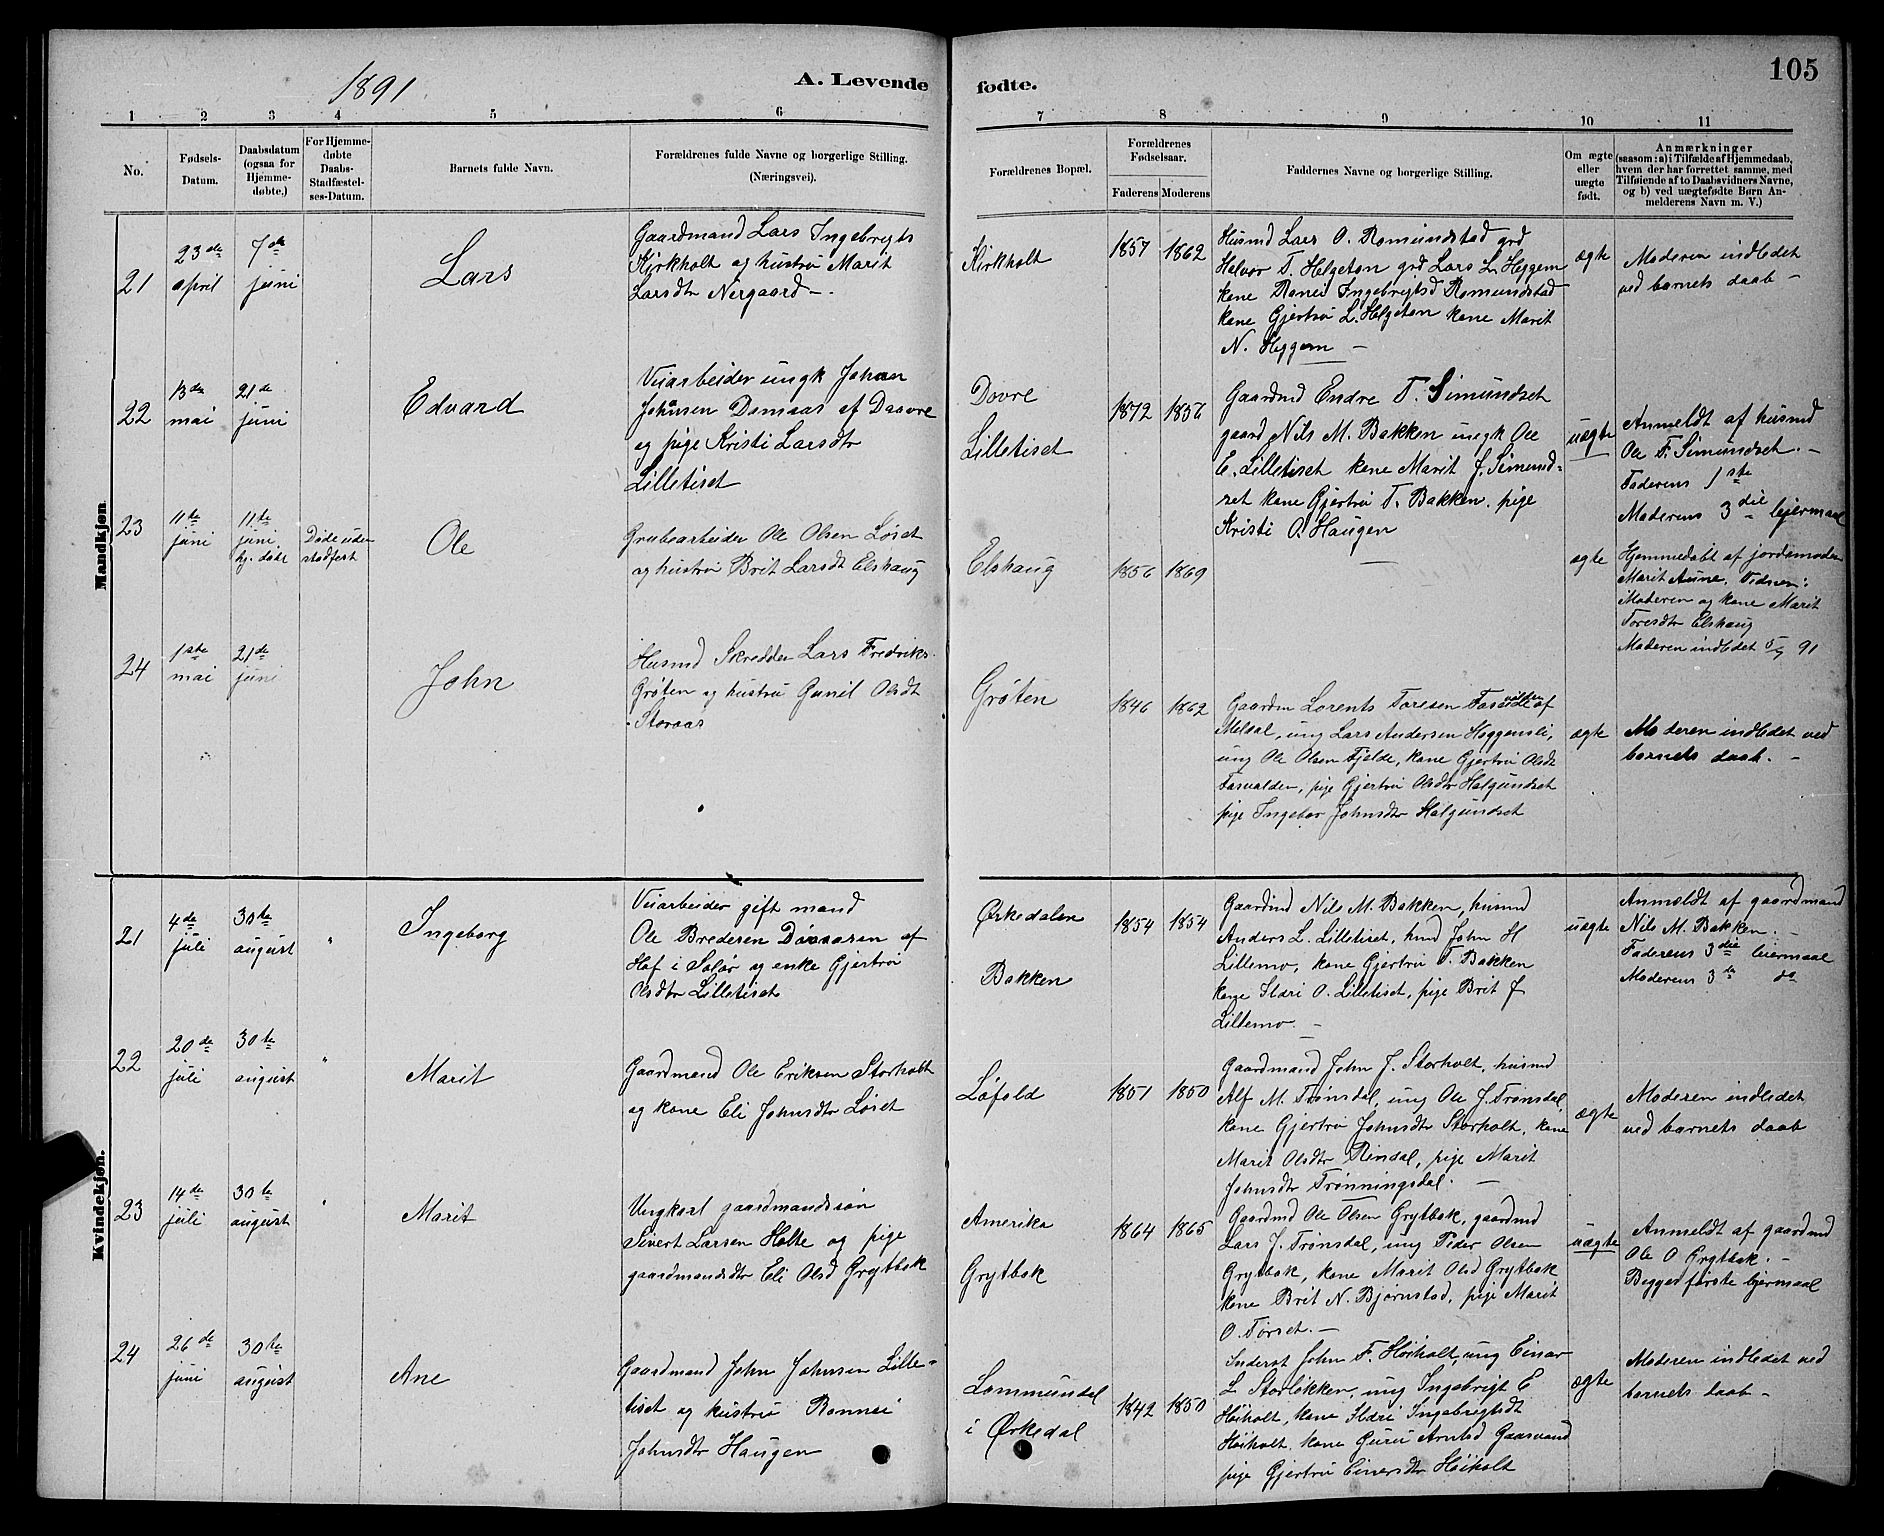 1891
A. Levende
fødte.
105
1
2
3
4
5
6
7
8
9
10
11
No.
Fødsels-
Datum.
Daabsdatum
(ogsaa for
Hjemme-
døbte.)
For Hjemme-
døbte
Daabs-
Stadfæstel-
ses-Datum.
Barnets fulde Navn.
Forældrenes fulde Navne og borgerlige Stilling.
(Næringsvei).
Forældrenes Bopæl.
Forældrenes
Fødselsaar.
Faderens
Moderens
Faddernes Navne og borgerlige Stilling.
Om ægte
eller
uægte
født.
Anmærkninger
(saasom: a) i Tilfælde af Hjemmedaab,
hvem der har forrettet samme, med
Tilføiende af to Daabsvidners Navne,
og b) ved uægtefødte Børn An-
melderens Navn m. V.)
Mandkjøn
21
23de
april
7de
juni
Lars
Gaardmand Lars Ingebrigts
Kirkholt og hustru Marit
Larsdtr Nergaard -.
Kirkholt
1857
1862
Husmd Lars O. Romundstad grd
Halvor T. Helgeton grd Lars L. Heggem
kone Ranei Ingebrigtsd Romundstad
kone Gjertru L. Helgeton kone Marit
N. Heggem -
ægte
Moderen indledet
ved barnets daab -
22
13de
mai
21de
juni
Edvard
Veiarbeider ungk Johan
Johnsen Domaas af Daavre
og pige Kristi Larsdtr
Lilletiset
Dovre
Lilletiset
1872
1856
Gaardmd Endre T. Simundset
gaard Nils M. Bakken ungk Ole
E. Lilletiset kone Marit J. Simund-
set kone Gjertru T. Bakken. pige
Kristi O. Haugen
uægte
Anmeldt af husmd
Ole F. Simundset. -
Faderens 1ste
Moderens 3die lejermaal
23
11te
juni
11te
juni.
hj. døbt
Døde uden
stadfest
Ole
Grubearbeider Ole Olsen Løset
og hustru Brit Larsdt Elshaug
Elshaug
1856
1869
-
ægte
Hjemmedøbt af jordemoder
Marit Aune. Vidner:
Moderen og kone Marit
Toresdtr Elshaug
Moderen indledet 5/7 91
24
1ste
mai
21de
juni
John
Husmd Skredder Lars Fredriks.
Grøten og hustru Gunil Olsdt
Storaas
Grøten
1846
1862
Gaardm Lorents Toresen Fasvolden af
Meldal, ung Lars Andersen Heggemsli,
ung Ole Olsen Fjelde, kone Gjertru Olsdt
Fasvolden, pige Gjertru Olsdtr Halgundset
pige Ingebor Johnsdtr Halgundset
ægte
Moderen indledet ved
barnets daab. -
Kvindekjøn.
21
4de
juli
30te
august
"
Ingeborg
Veiarbeider gift mand
Ole Bredesen af
Hof i Solør og enke Gjertru
Olsdtr Lilletiset
Ørkedalen
Bakken
1854
1854
Gaardmd Nils M. Bakken, husmd
Anders L. Lilletiset, husmd John H
Lillemo, kone Gjertru T. Bakken
kone Ildri O. Lilletiset, pige Brit J
Lillemo. -
uægte
Anmeldt af gaardmand
Nils M. Bakken. -
Faderens 3die leiermaal
Moderens 3de do
22
20de
juli
30te
august
"
Marit
Gaardmand Ole Eriksen Storholt
og kone Eli Johnsdtr Løset
Løfald
1851
1850
Gaardmand John J. Storholt, husmd
Alf M. Trønsdal, ung Ole J. Trønsdal,
kone Gjertru Johnsdtr Storholt, kone
Marit Olsdtr Rindal, pige Marit
Johnsdtr Trønningsdal. -
ægte
Moderen indledet
ved barnets daab
23
14de
juli
30te
august
"
Marit
Ungkarl gaardmandssøn
Sivert Larsen Holte og pige
gaardmandsdtr Eli Olsd Grytbak
Amerika
Grytbak
1864
1865
Gaardmd Ole Olsen Grytbak, gaardmd
Lars J. Trønsdal, ung Peder Olsen
Grytbak, kone Marit Olsd Grytbak
kone Brit N. Bjørnstad, pige Marit
O. Tørset. -
uægte
Anmeldt af gaardmd
Ole O Grytbak. -
Begges første lejermaal
24
26de
juni
30te
august
Ane
Gaardmand John Johnsen Lille-
tiset og hustru Rannei
Johnsdtr Haugen
Lommundal
i Ørkedal
1842
1850
Inderst John F. Høiholt, ung Einar
L Storløkken, ung Ingebrigt E.
Høiholt, kone Ildri Ingebrigtsdt
Høiholt, kone Guru Arntsd Gaasvand
pige Gjertru Einersdtr Høiholt
ægte
Moderen indledet ved
barnets daab -